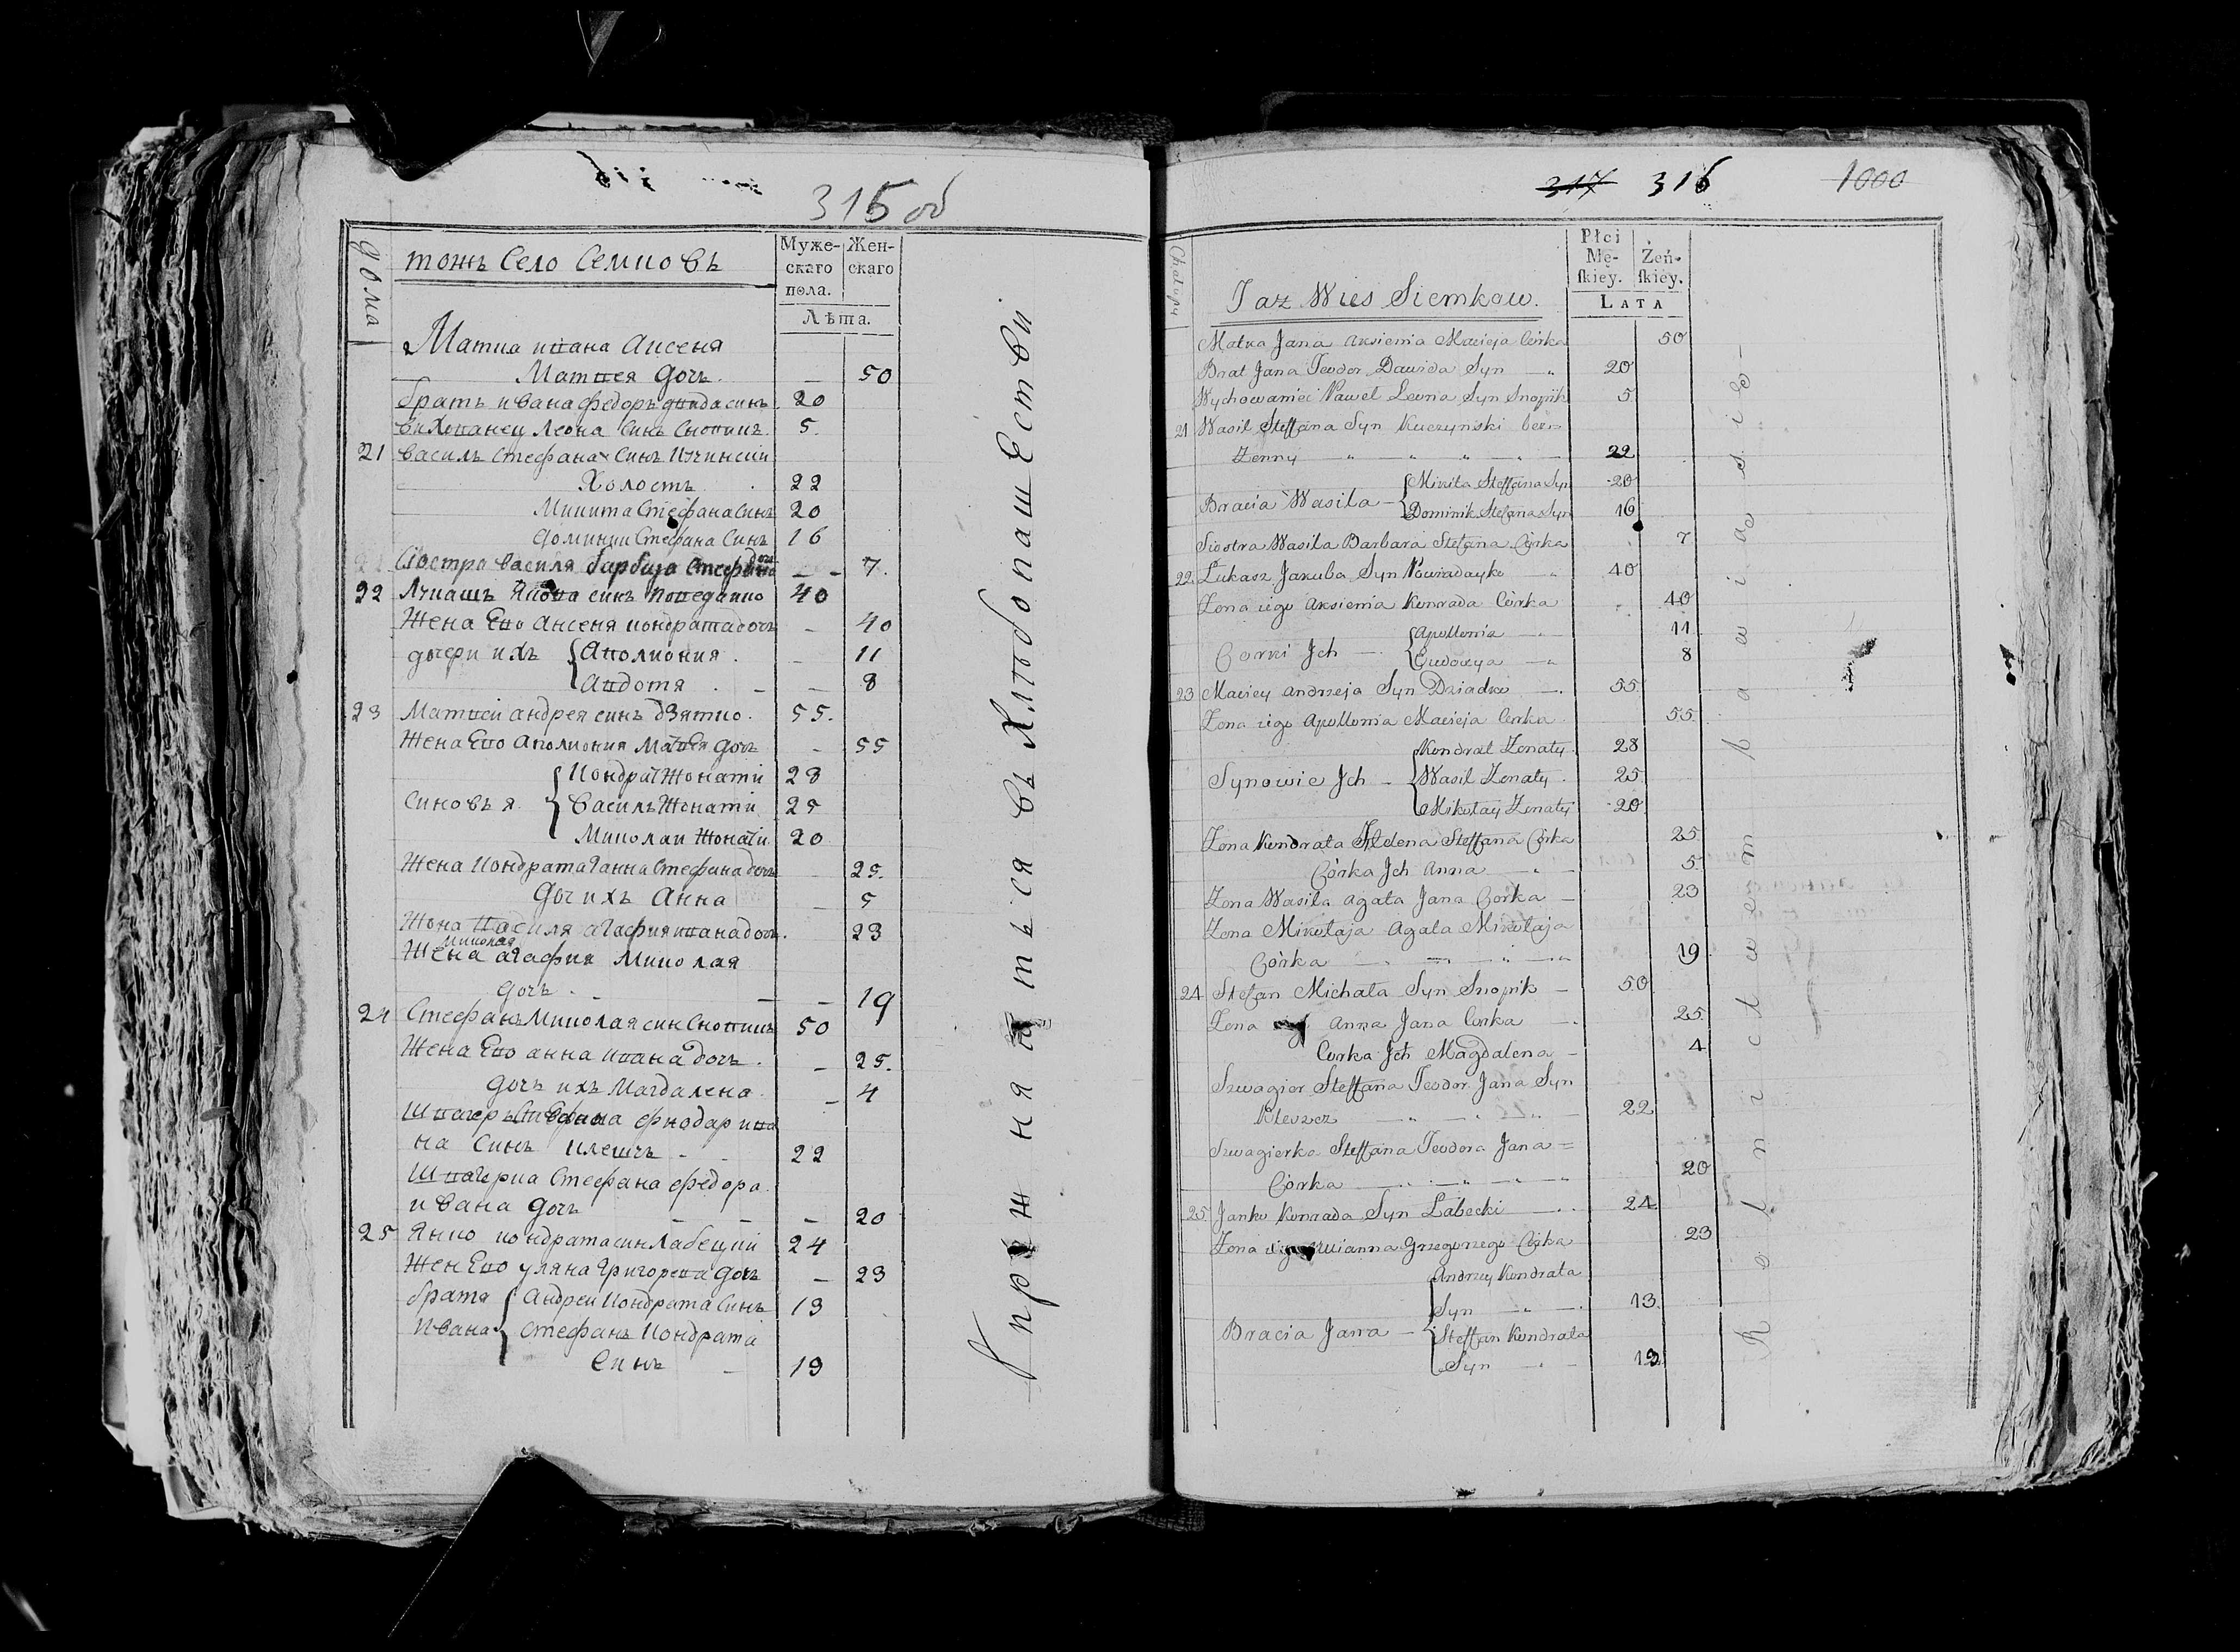 315 об
дома
тожъ Село Семковъ
Муже-
скаго
пола.
Жен-
скаго
Лѣта.
Матка ивана Аксеня
Матвея дочь. — 50
братъ ивана федоръ синъ 20
Леона Синъ Снопикъ. 5.
21 василь Стефана Синъ
Холость 22
Микита Стефана Синъ 20
доминик Стефана Синъ 16
Сiостра василя барбара Стефана дочь — 7.
22 Лукашъ Якова синъ 40
Жена Ево Аксеня кондрата дочь — 40
дочери ихъ { Аполиония . — 11
Авдотя . — 8
23 Матвей андрея синъ дзятко . 55.
Жена Ево Аполиония Матвея дочь — 55
Кондрат Жонати 28
Синовья { Василь Жонати 25
Миколаи Жонати. 20
Жена Кондрата Ганна Стефана дочь 25.
дочь ихъ Анна — 5
Жона Василя агафия ивана дочь. 23
миколая
Жена агафия Миколая
дочь . — 19
24 Стефанъ Миколая син Снопикъ 50
Жена Ево анна ивана дочь . — 25.
дочь ихъ Магдалена . — 4
Швагеръ Стефана фиодар ива
на Синъ клешчъ - 22
Швагерка Стефана федора
ивана дочь — 20
25 Янко кондрата син Лабецкий 24
Жен Ево уляна Григорева дочь — 23
брата { Андреи Кондрата Синъ 13
ивана { Стефанъ Кондрата
Синъ — 13
Упражняются въ Хлѣбопашестви
317 316 1000
Chałupy
Taz Wies Siemkow.
Płci
Mę-
skiey.
Żeń-
skiey.
LATA
Matka Jana Aksienia Macieja Córka 50
Brat Jana Teodor Dawida Syn — 20
Wychowaniec Paweł Leona Syn Snopik 5
21 Wasil Steffana Syn Kuczynski bez=
Zenny — 22
Bracia Wasila — { Mikita Steffana Syn 20
Dominik Stefana Syn 16
Siostra Wasila Barbara Stefana Córka 7
22. Łukasz Jakuba Syn Powiadayko — 40
Zona iego Aksienia Konrada Córka 40
Corki Jch — { Apollonia — 11
Eudoxya — 8
23 Maciey Andrzeja Syn Dziadko — 55
Zona iego Apollonia Macieja Corka 55
Synowie Jch — { Kondrat Zonaty 28
Wasil Zonaty. 25
Mikołay Zonaty 20
Zona Kondrata Helena Steffana Córka 25
Córka Jch Anna — 5
Zona Wasila Agata Jana Corka — 23
Zona Mikołaja Agata Mikołaja
Córka — 19
24 Stefan Michała Syn Snopik — 50
Zona Anna Jana Corka — 25
Corka Jch Magdalena — 4
Szwagier Steffana Teodor Jana Syn
Kleszcz — 22
Szwagierka Steffana Teodora Jana =
Córka — 20
25. Janko Konrada Syn Łabecki — 24
Zona iego Julianna Grzegorzego Córka 23
Andrzey Kondrata
Syn — 13.
Bracia Jana — { Steffan Kondrata
Syn — 13
Rolnictwem bawia sie —